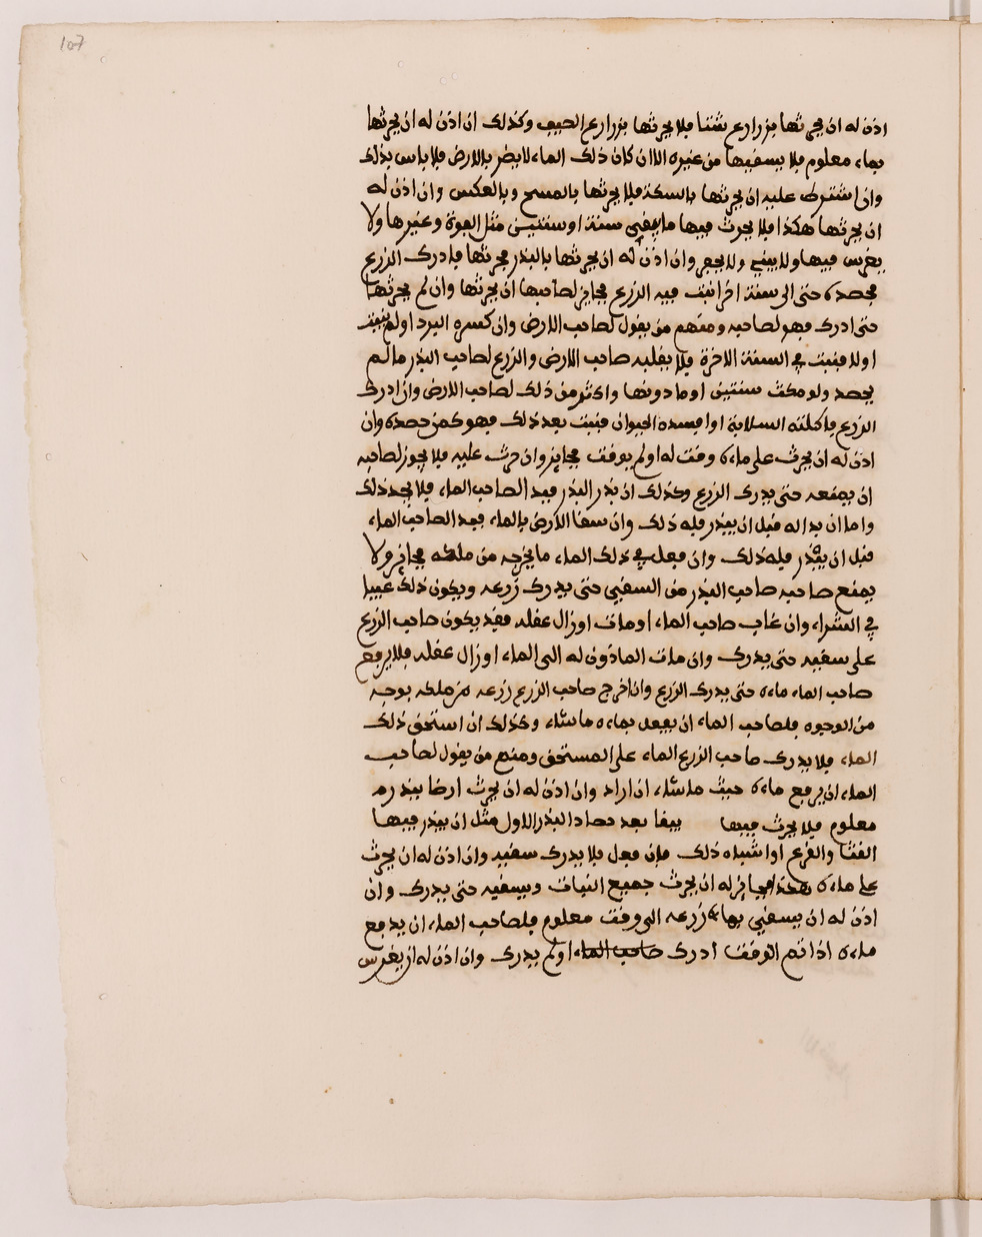 107
اذن له ان يحرثها بزرارع شتا فلا يحرثها بزرارع الصيف وكذلك ان اذن له ان يحرثها
بماء معلوم فلا يسقيها من غيره الا ان كان ذلك الماء لا يضر بالارض فلا باس بذلك
وان اشترط عليه ان يحرثها بالسكة فلا يحرثها بالمسح وبالعكس وان اذن له
ان يحرثها هكذا فلا يحرث فيها ما يقي سنة او سنتين مثل الفوة وغيرها ولا
يغرس فيها ولا يبني ولا يحفر وان اذن له ان يحرثها بالبذر فحرثها فادرك الزرع
فحصده حتى الى سنة اخرى نبت فيه الزرع فجايز لصاحبها ان يحرثها وان لم يحرثها
حتى ادرك فهو لصاحبه ومنهم من يقول لصاحب الارض وان كسره البرد او لم ينبت
اولا فنبت في السنة الاخرة فلا يقلبه صاحب الارض والزرع لصاحب البذر ما لم
يحصد ولو مكث سنتين او ما دونها واكثر من ذلك لصاحب الارض وان ادرك
الزرع فاكلته السلابة او افسده الحيوان فنبت بعد ذلك فهو كمن حصده وان
اذن له ان يحرث على ماءه وقت له او لم يوقت فجايز وان حرث عليه فلا يجوز لصاحبه
ان يمنعه حتى يدرك الزرع وكذلك ان بذر البذر فبدا لصاحب الماء فلا يجد ذلك
واما ان بدا له قبل ان يبذر فله ذلك وان سقا الارض بالماء فبدا لصاحب الماء
قبل ان يبذر فله ذلك وان فعل في ذلك الماء ما يخرجه من ملكه فجايز ولا
يمنع صاحبه صاحب البذر من السقي حتى يدرك زرعه ويكون ذلك عيبا
في الشراء وان غاب صاحب الماء او مات او زال عقله فقد يكون صاحب الزرع
على سقيه حتى يدرك وان مات الماذون له الى الماء او زال عقله فلا يرفع
صاحب الماء ماءه حتى يدرك الزرع وان اخرج صاحب الزرع زرعه من ملكه بوجه
من الوجوه فلصاحب الماء ان يفعل بماءه ما شاء وكذلك ان استحق ذلك
الماء فلا يدرك صاحب الزرع الماء على المستحق ومنهم من يقول لصاحب
الماء ان يرفع ماءه حيث ما شاء ان اراد وان اذن له ان يحرث ارضا ببذر
معلوم فلا يحرث فيها يبقا بعد حصاد البذر الاول مثل ان يبذر فيها
القثا والقرع او اشباه ذلك فان فعل فلا يدرك سقيه وان اذن له ان يحرث
على ماءه هكذا فجايز له ان يحرث جميع النبات ويسقيه حتى يدرك وان
اذن له ان يسقي بماءه زرعه الى وقت معلوم فلصاحب الماء ان يدفع
ماءه اذا تم الوقت ادرك صاحب الماء او لم يدرك وان اذن له ان يغرس